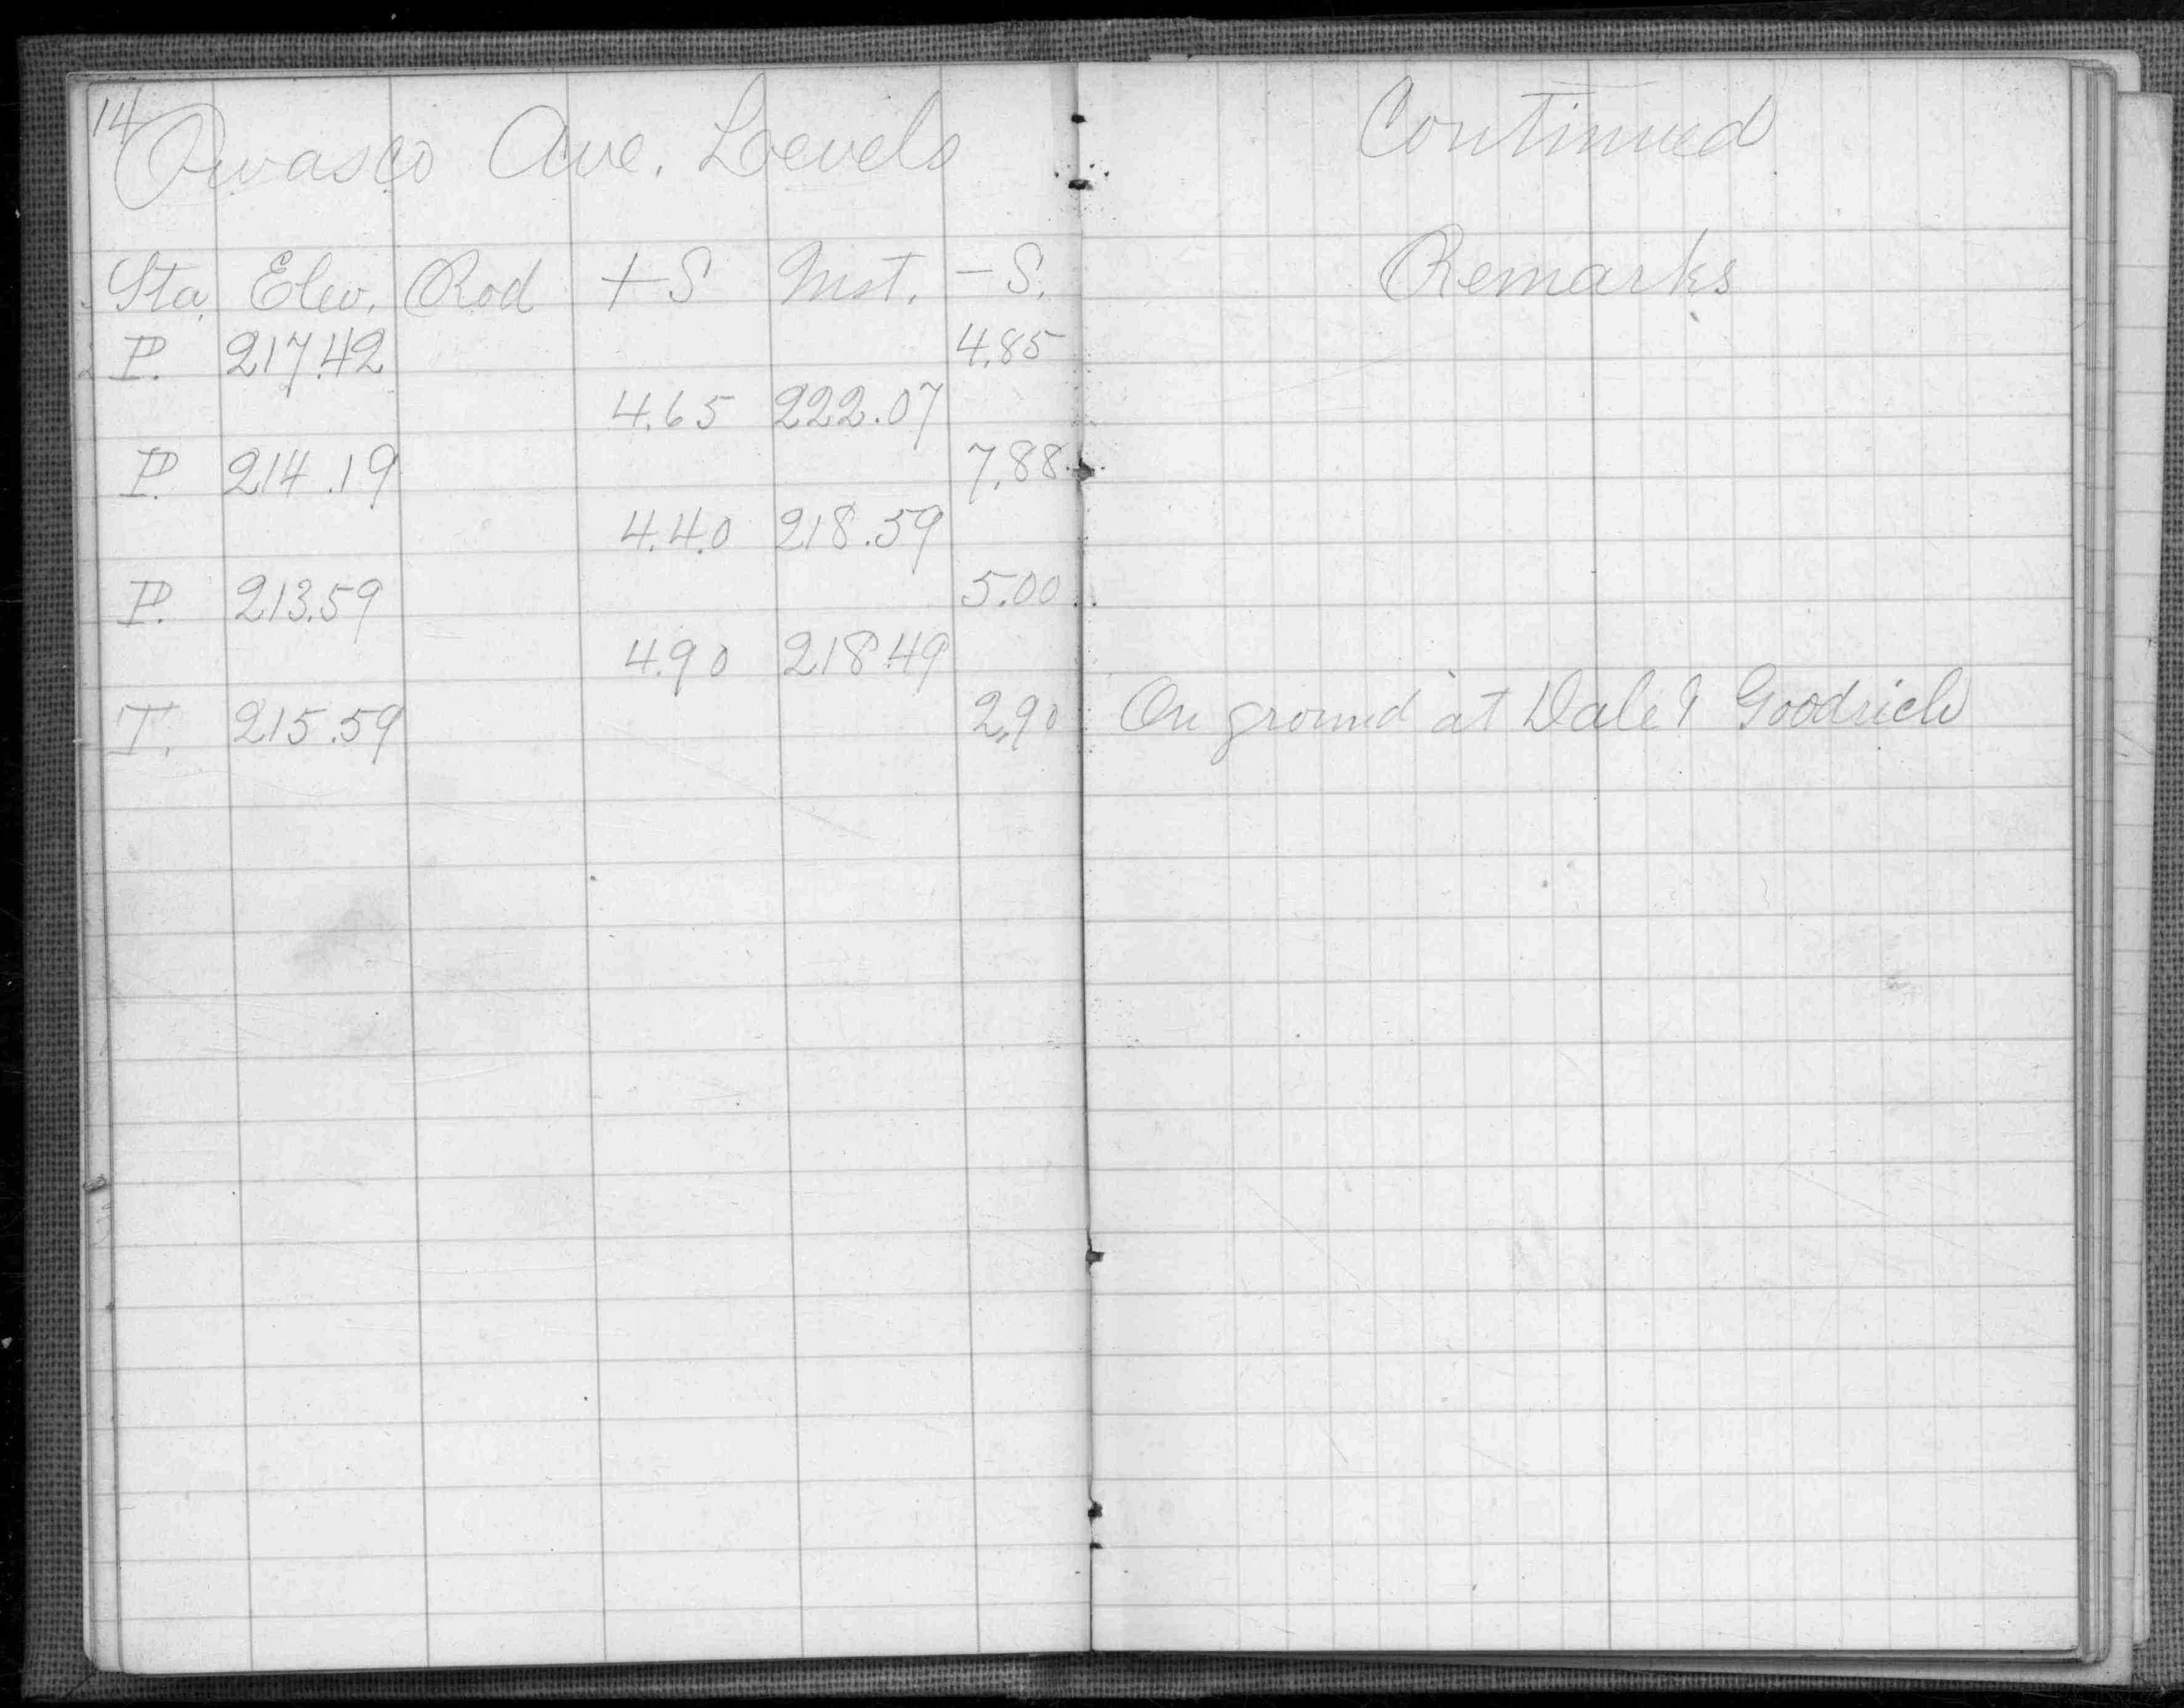 14
Owasco Ave. Levels Continued
Sta. Elev. Rod + S Inst. - S. Remarks
P. 217.42 4.85
4.65 222.07
P. 214.19 7.88
4.40 218.59
P. 213.59 5.00
4.90 218.49
T. 215.59 2.90 On ground at Dale & Goodrich